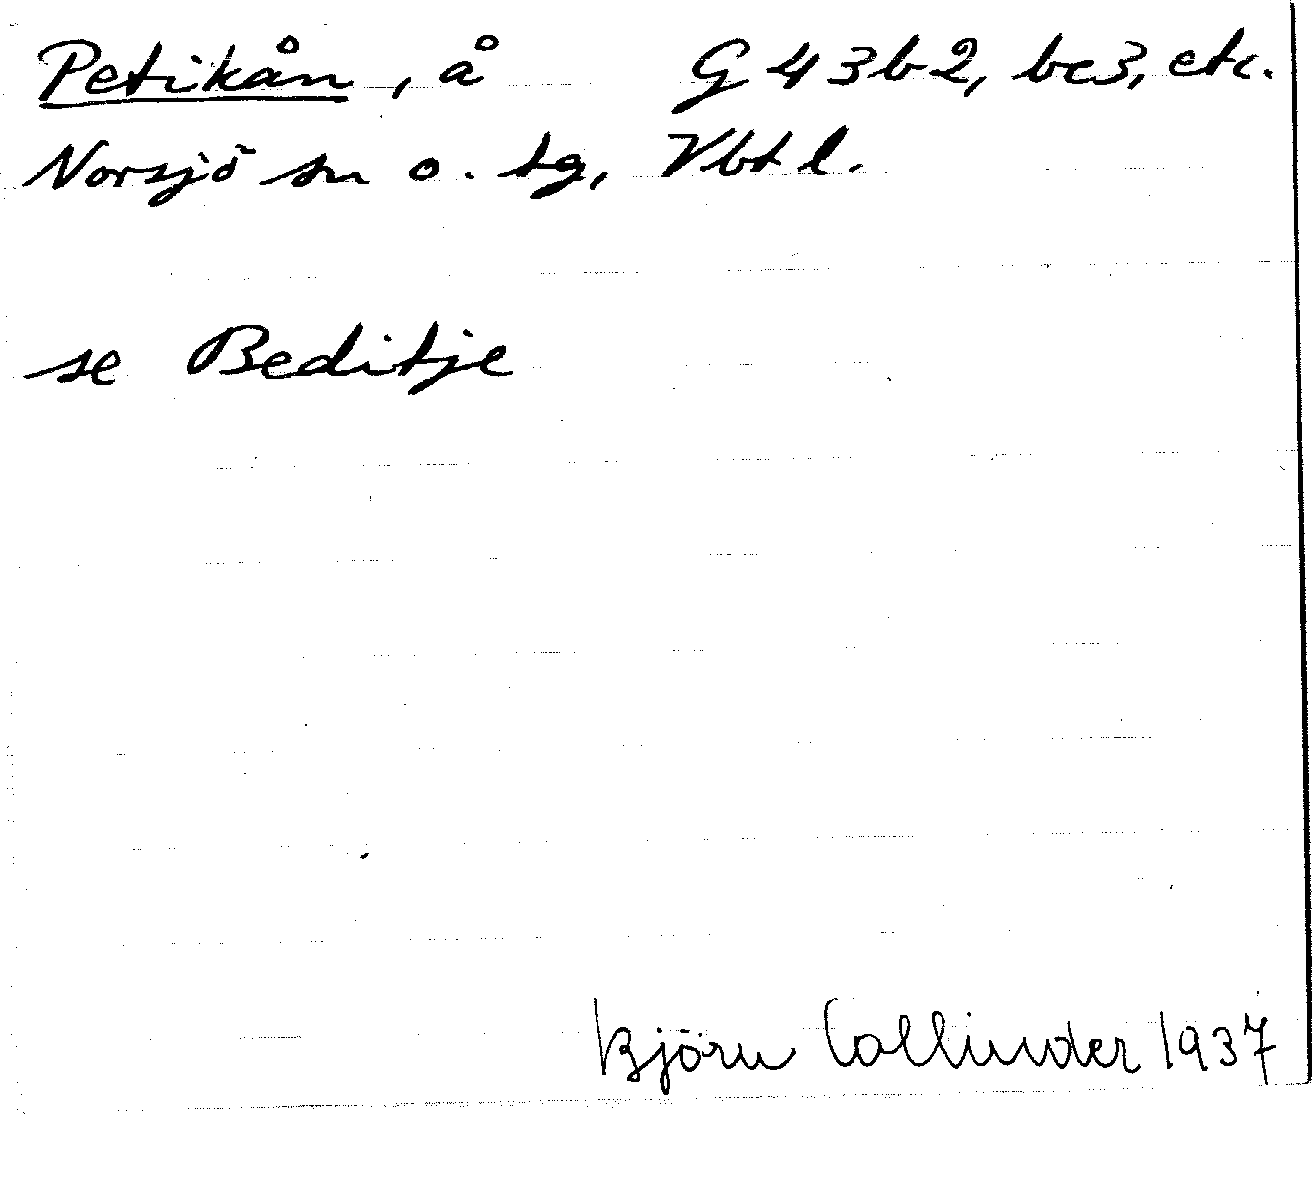 Petikån, å G 43b2, bc3, etc.
Norsjö sn o. tg, Vbt l.
se Beditje
Björn Collinder 1937